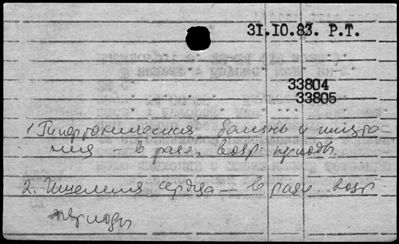 31.10.83. Р.Т.
33804
33805
1. Гипертоническая болезнь и
ния – в разн. возр. периоды
2. Ишемия сердца – в разн. возр
периоды